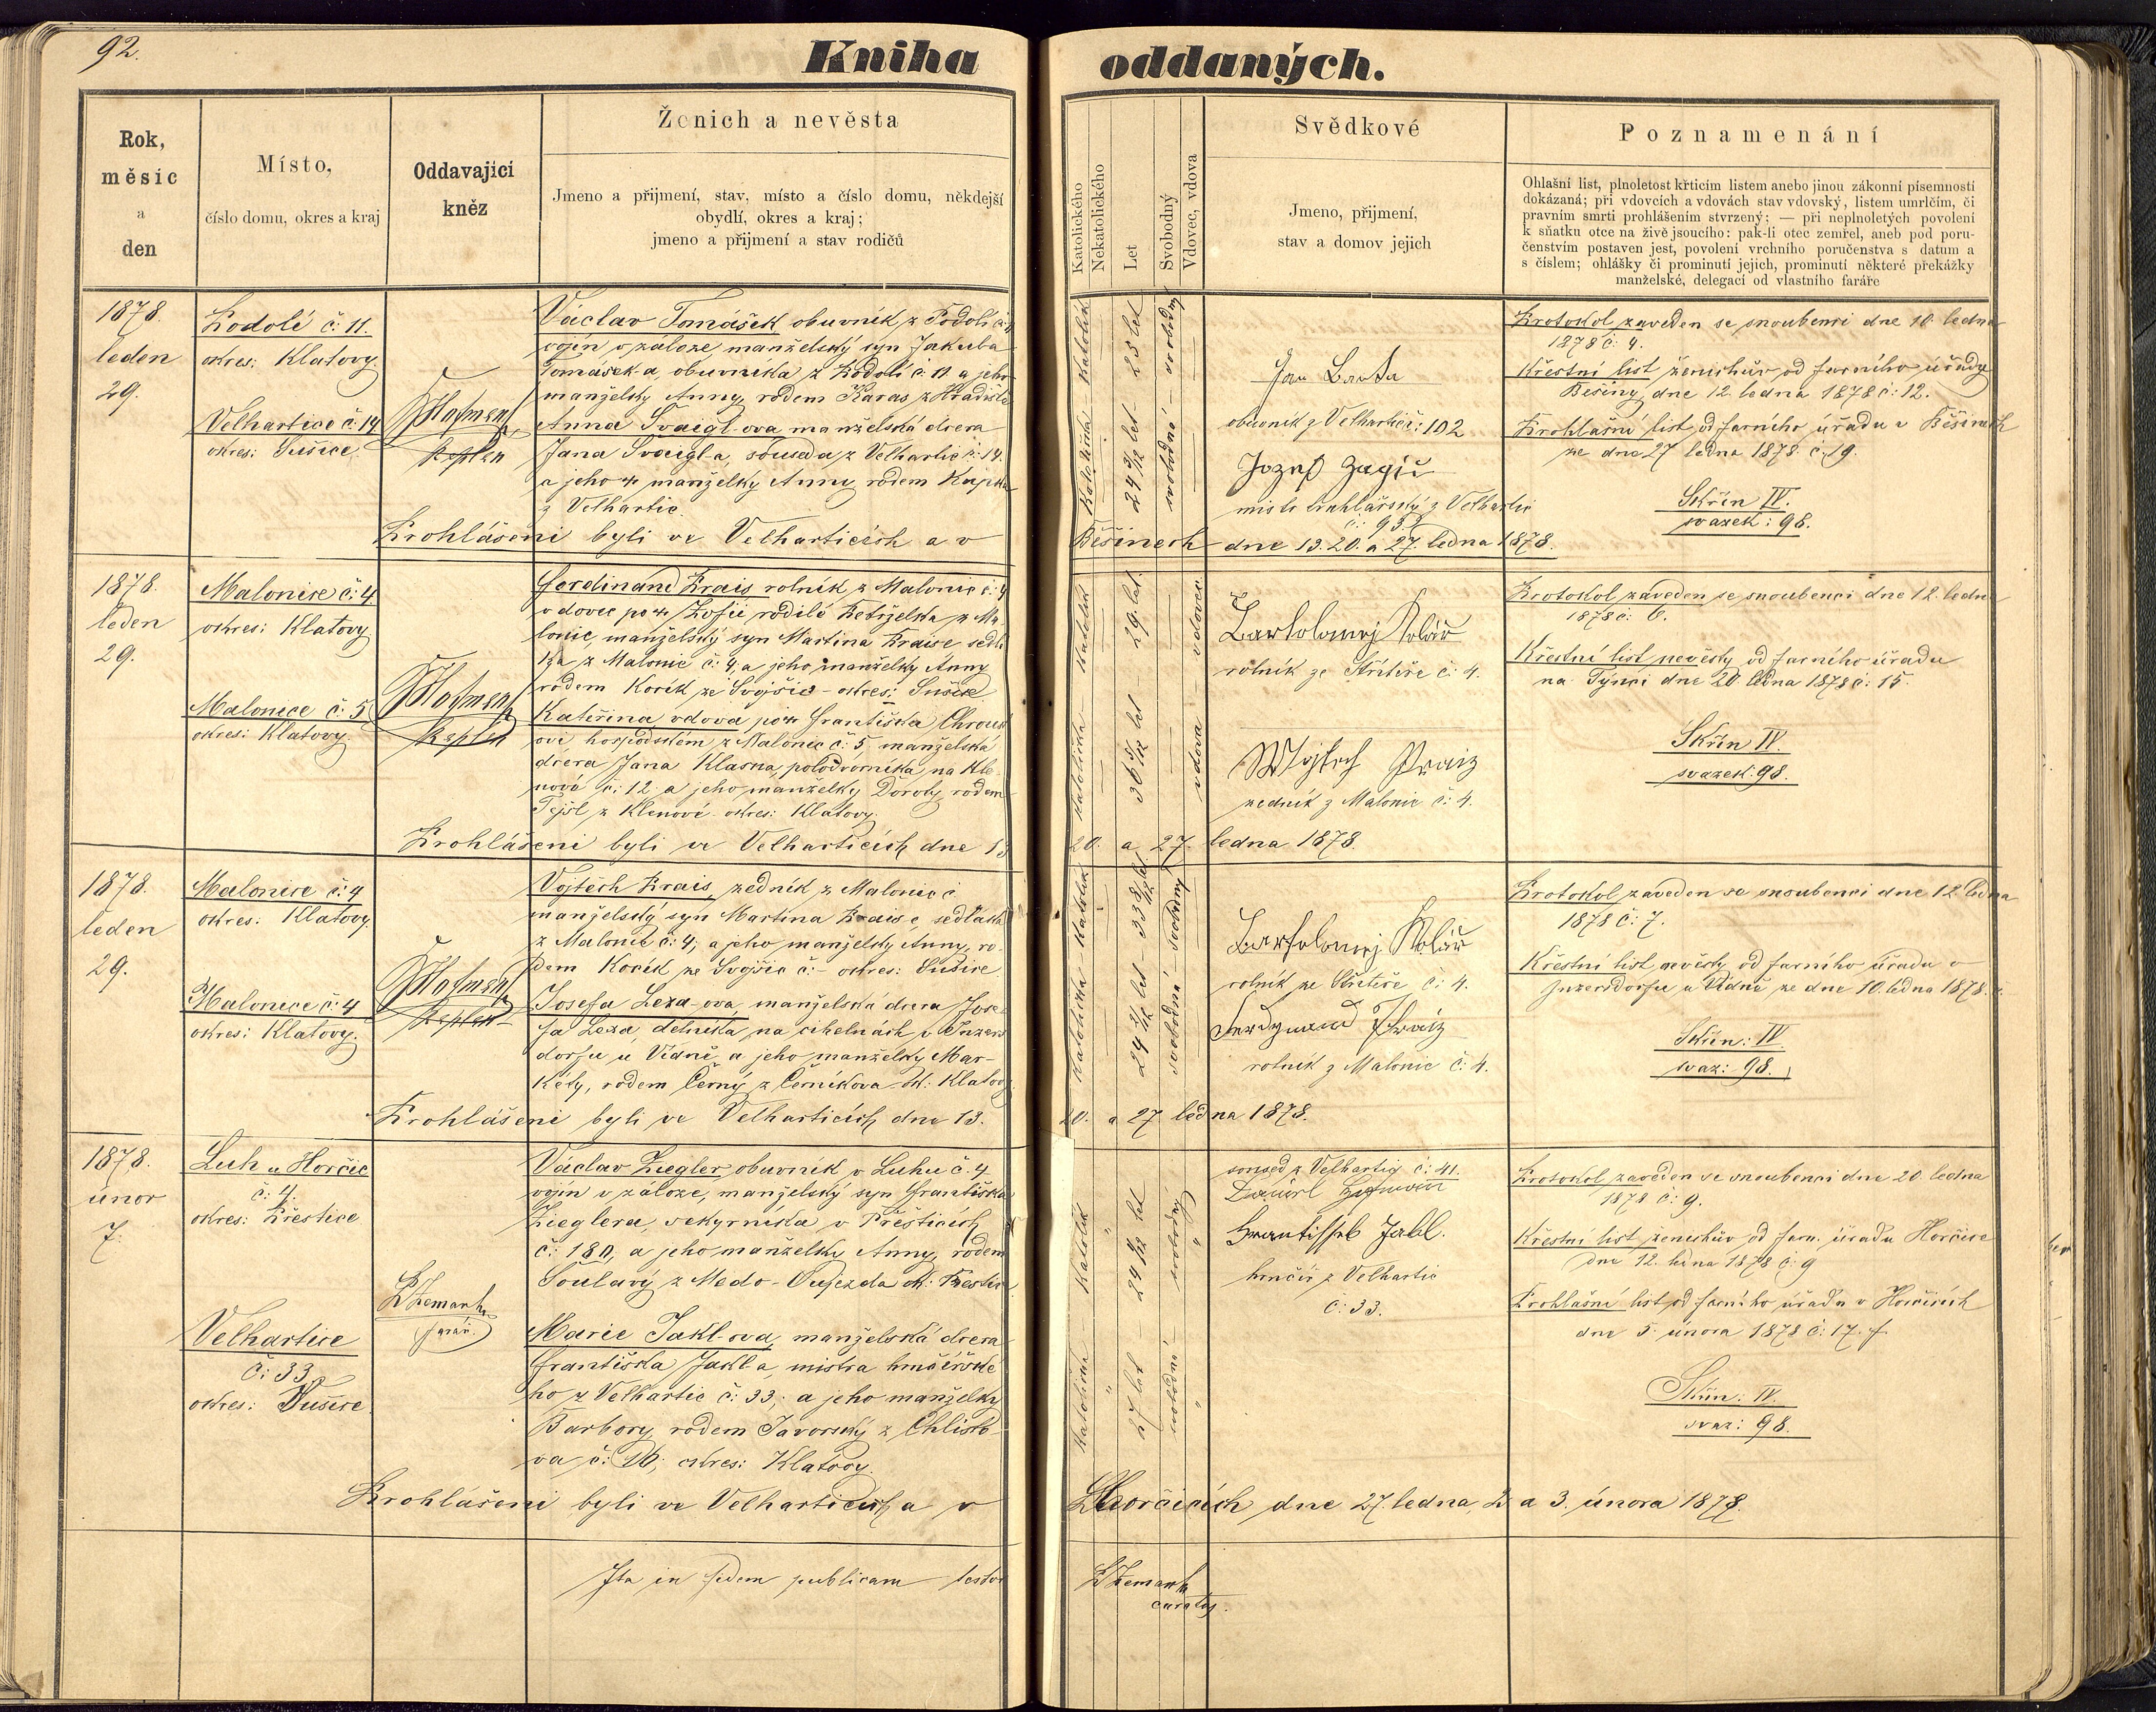 92.
Kniha oddaných.
Rok,
měsíc
a
den
Místo,
číslo domu, okres a kraj
Oddavající
kněz
Ženich a nevěsta
Jmeno a přijmení, stav, místo a číslo domu, někdejší
obydlí, okres a kraj;
jmeno a přijmení a stav rodičů
Katolického
Nekatolického
Let
Svobodný
Vdovec, vdova
Svědkové
Jmeno, přijmení,
stav a domov jejich
Poznamenání
Ohlašní list, plnoletost křticím listem anebo jinou zákonní písemností
dokázaná; při vdovcích a vdovách stav vdovský, listem umrlčím, či
pravním smrti prohlášením stvrzený; — při neplnoletých povolení
k sňatku otce na živě jsoucího: pak-li otec zemřel, aneb pod poru-
čenstvím postaven jest, povolení vrchního poručenstva s datum a
s číslem; ohlášky či prominutí jejich, prominutí některé překážky
manželské, delegací od vlastního faráře
1878.
leden
29.
Podolí č: 11.
okres: Klatovy.
Velhartice č: 14
okres: Sušice
Hofmann
kaplan
Václav Tomášek, obuvník z Podolí č: 11
vojín v záloze, manželský syn Jakuba
Tomáška, obuvníka z Podolí č: 11 a jeho
manželky Anny, rodem Karas z Hradiště
Anna Švaigl-ova manželská dcera
Jana Švaigla, souseda z Velhartic č: 14.
a jeho manželky Anny, rodem
z Velhartic.
Prohlášeni byli ve Velharticích a v
Běšinech dne 13. 20. a 27. ledna 1878.
Katolík
23 let
svobodný
Katolička
24 let
svobodná
Jan
obuvník z Velhartic č: 102
Jozef
mistr truhlářský z Velhartic
č: 93.
Protokol zaveden se snoubenci dne 10. ledna
1878 č: 4.
Křestní list ženichův od farního úřadu
Běšiny dne 12. ledna 1878 č: 12.
Prohlašní list od farního úřadu v Běšinech
ze dne 27 ledna 1878 č: 19.
Skřín IV.
svazek: 98.
1878.
leden
29.
Malonice č: 4.
okres: Klatovy
Malonice č: 5
okres: Klatovy.
Hofmann
kaplan
Ferdinand Prais rolník z Malonic č: 4
vdovec po Žofii, rodilé z Ma-
lonic, manželský syn Martina Praise sedlá-
ka z Malonic č: 4, a jeho manželky Anny
rodem Kocík ze Svojšic - okres: Sušice
Kateřina, vdova po Františku
hospodském z Malonic č: 5, manželská
dcera Jana Klasna, polodvorníka na Kle-
nové č: 12, a jeho manželky Doroty, rodem
z Klenové. okres: Klatovy.
Prohlášeni byli ve Velharticích dne 13
20. a 27. ledna 1878
Katolík
29. let
vdovec
Katolička
36 let
vdova
Bartolomej Kolář
rolník ze Střítěže č: 4.
Wojtech Praiz
zedník z Malonic č: 4.
Protokol zaveden se snoubenci dne 12. ledna
1878 č: 6.
Křestní list nevěsty od farního úřadu
na Týnci dne 20 ledna 1878 č: 15.
Skřín IV.
svazek: 98.
1878.
leden
29.
Malonice č: 4
okres: Klatovy.
Malonice č: 4
okres: Klatovy.
Hofmann
kaplan
Vojtěch Prais, zedník z Malonic
manželský syn Martina Praise, sedláka
z Malonic č: 4; a jeho manželky Anny, ro-
dem Kocík ze Svojšic č: - okres: Sušice
Josefa Leza-ova, manželská dcera Jose-
fa Leza, dělníka na cihelnách v Inzers-
dorfu u Vídně, a jeho manželky Mar-
kéty, rodem Černý z Černíkova. ok: Klatovy
Prohlášeni byli ve Velharticích dne 13.
20. a 27 ledna 1878.
Katolík
33 let
svobodný
Katolička
24 let
svobodná
Bartolomej Kolář
rolník ze Střítěže č: 4.
Ferdynand Praiz
rolník z Malonic č: 4.
Protokol zaveden se snoubenci dne 12 ledna
1878 č: 7.
Křestní list nevěsty od farního úřadu v
Inzersdorfu u Vídně ze dne 10. ledna 1878.
Skřín: IV
svaz: 98.
1878.
únor
7.
Luh u Horčic
č: 4.
okres: Přeštice
Velhartice
č: 33
okres: Sušice.
Zemank
farář.
Václav Ziegler, obuvník v Luhu č. 4
vojín v záloze, manželský syn Františka
Zieglera, sekyrníka v Přešticích
č: 180, a jeho manželky Anny, rodem
Šoulavý z Medo-Oujezda ok: Přeštice
Marie Jakl-ova, manželská dcera
Františka Jakla, mistra hrnčířské-
ho z Velhartic č: 33; a jeho manželky
Barbory, rodem Javorský z Chlisto-
va č: 16; okres: Klatovy.
Prohlášeni byli ve Velharticích a v
Horčicích dne 27. ledna, 2 a 3. února 1878.
Katolík
24 let
svobodný
Katolička
27 let
svobodná
soused z Velhartic č: 41.
Frantissek Jakl.
hrnčíř z Velhartic
č: 33.
Protokol zaveden se snoubenci dne 20 ledna
1878 č: 9.
Křestní list ženichův od farn. úřadu Horčice
dne 12. ledna 1878 č: 9
Prohlašní list od farního úřadu v Horčicích
dne 5. února 1878 č: 17.
Skřín: IV.
svaz: 98.
Ita in fidem publicam testor
Zemank
curatus.